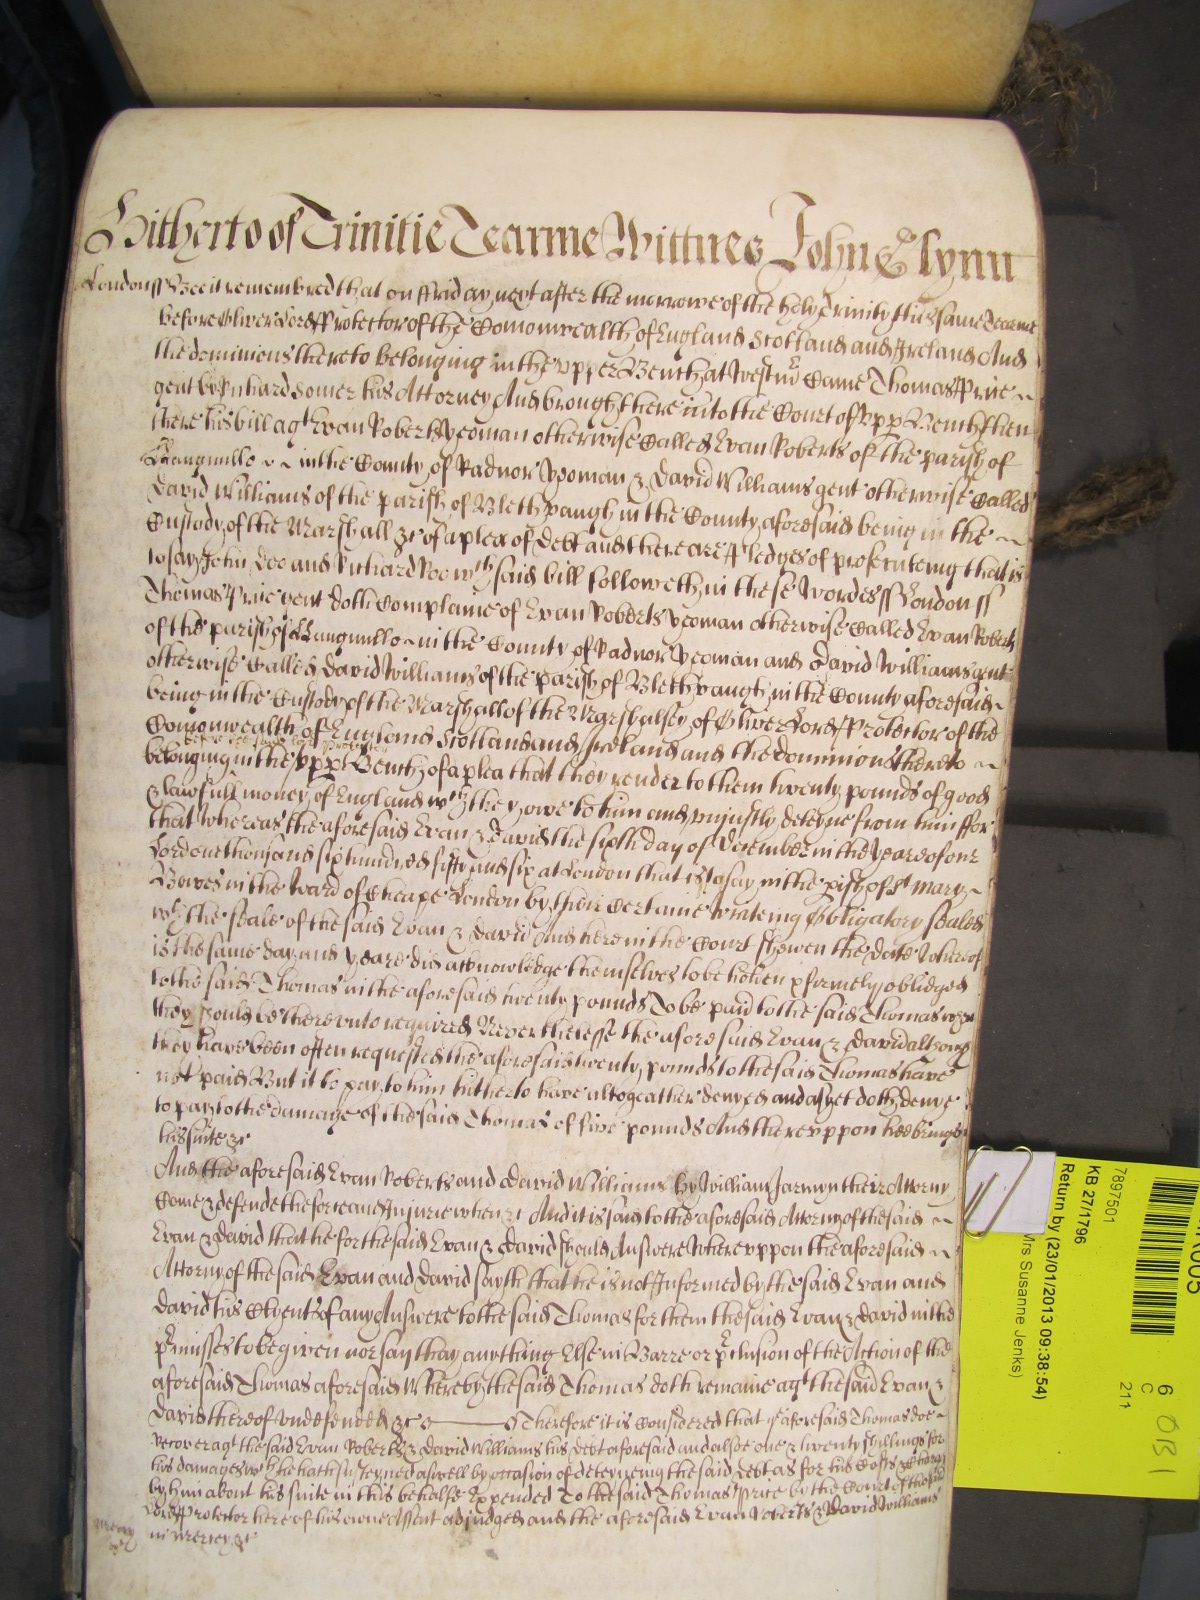 Hitherto of Trinitie Tearme Wittnes John Glynn
London ss Bee it remembred that on ffriday next after the morrowe of the holy Trinity this same Tearme
before Oliver Lord Protector of the Comonwealth of England Scotland and Ireland And
the dominions thereto belonging in the upper Bench at Westmr Came Thomas Price
gent by Richard Somer his Attorney And brought there into the Court of Upp Bench then
there his bill agt Evan Roberts yeoman otherwise Called Evan Roberts of the parish of
Llangunllo in the County of Radnor yeoman & David Williams gent otherwise Called
David Williams of the parish of Blethvaugh in the County aforesaid being in the
Custody of the Marshall &c of a plea of debt and there are Pledges of prosecuteing that is
to say John Doe and Richard Roe wch said bill followeth in these wordes ss London ss
Thomas Price gent doth Complaine of Evan Roberts yeoman otherwise Called Evan Roberts
of the parish of Llangunllo in the County of Radnor yeoman and David Williams gent
otherwise Called David Williams of the parish of Blethvaugh in the County aforesaid
being in the Custody of the Marshall of the Marshalsey of Oliver Lord Protector of the
Comonwealth of England Scotland and Ireland and the dominions thereto
before the said Lord Protector
belonging in the upp Bench of a plea that they render to them twenty pounds of good
& lawfull money of England wch they owe to him and unjustly deteyne from him ffor
that whereas the aforesaid Evan & David the sixth day of December in the yeare of our
Lord one thousand six hundred fifty and six at London that is to say in the pish of St Mary
Bowes in the ward of Cheape London by their Certaine writeing Obligatory sealed
wth the seale of the said Evan & David And here in the Court shewen the date whereof
is the same day and yeare did acknowledge themselves to be holden & firmely obliged
to the said Thomas in the aforesaid twenty pounds To be paid to the said Thomas when
they should be thereunto required Neverthelesse the aforesaid Evan & David although
they have been often requested the aforesaid twenty pounds to the said Thomas have
not paid But it to pay to him hitherto have altogeather denyed and as yet doth denye
to pay to the damage of the said Thomas of five pounds And thereuppon hee bringeth
his suite &c
And the aforesaid Evan Roberts and David Williams by William Jarmyn their Attorny
Come & defende the force and Injurie when &c And it is said to the aforesaid Attorny of the said
Evan & David that he for the said Evan & David should Answere Whereuppon the aforesaid
Attorny of the said Evan and David sayth that he is not Informed by the said Evan and
David his Clyents of any Answere to the said Thomas for them the said Evan & David in the
pmisses to be given nor say they anything Else in Barre or pclusion of the Action of the
aforesaid Thomas aforesaid Whereby the said Thomas doth remaine agt the said Evan &
David thereof undefended &c Therefore it is Considered that ye aforesaid Thomas doe
recover agt the said Evan Roberts & David Williams his debt aforesaid and alsoe one & twenty shillings for
his damages wch he hath susteyned aswell by occasion of deteyneing the said debt as for his Costs & Charges
by him about his suite in this behalfe Expended To the said Thomas Price by the Court of the said
Lord Protector here of his owne Assent adjudged and the aforesaid Evan Roberts & David Williams
mercy
in mercy &c
7897501
KB 27/1796
Return by (23/01/2013 09:38:54)
Mrs Susanne Jenks)
6
C
211